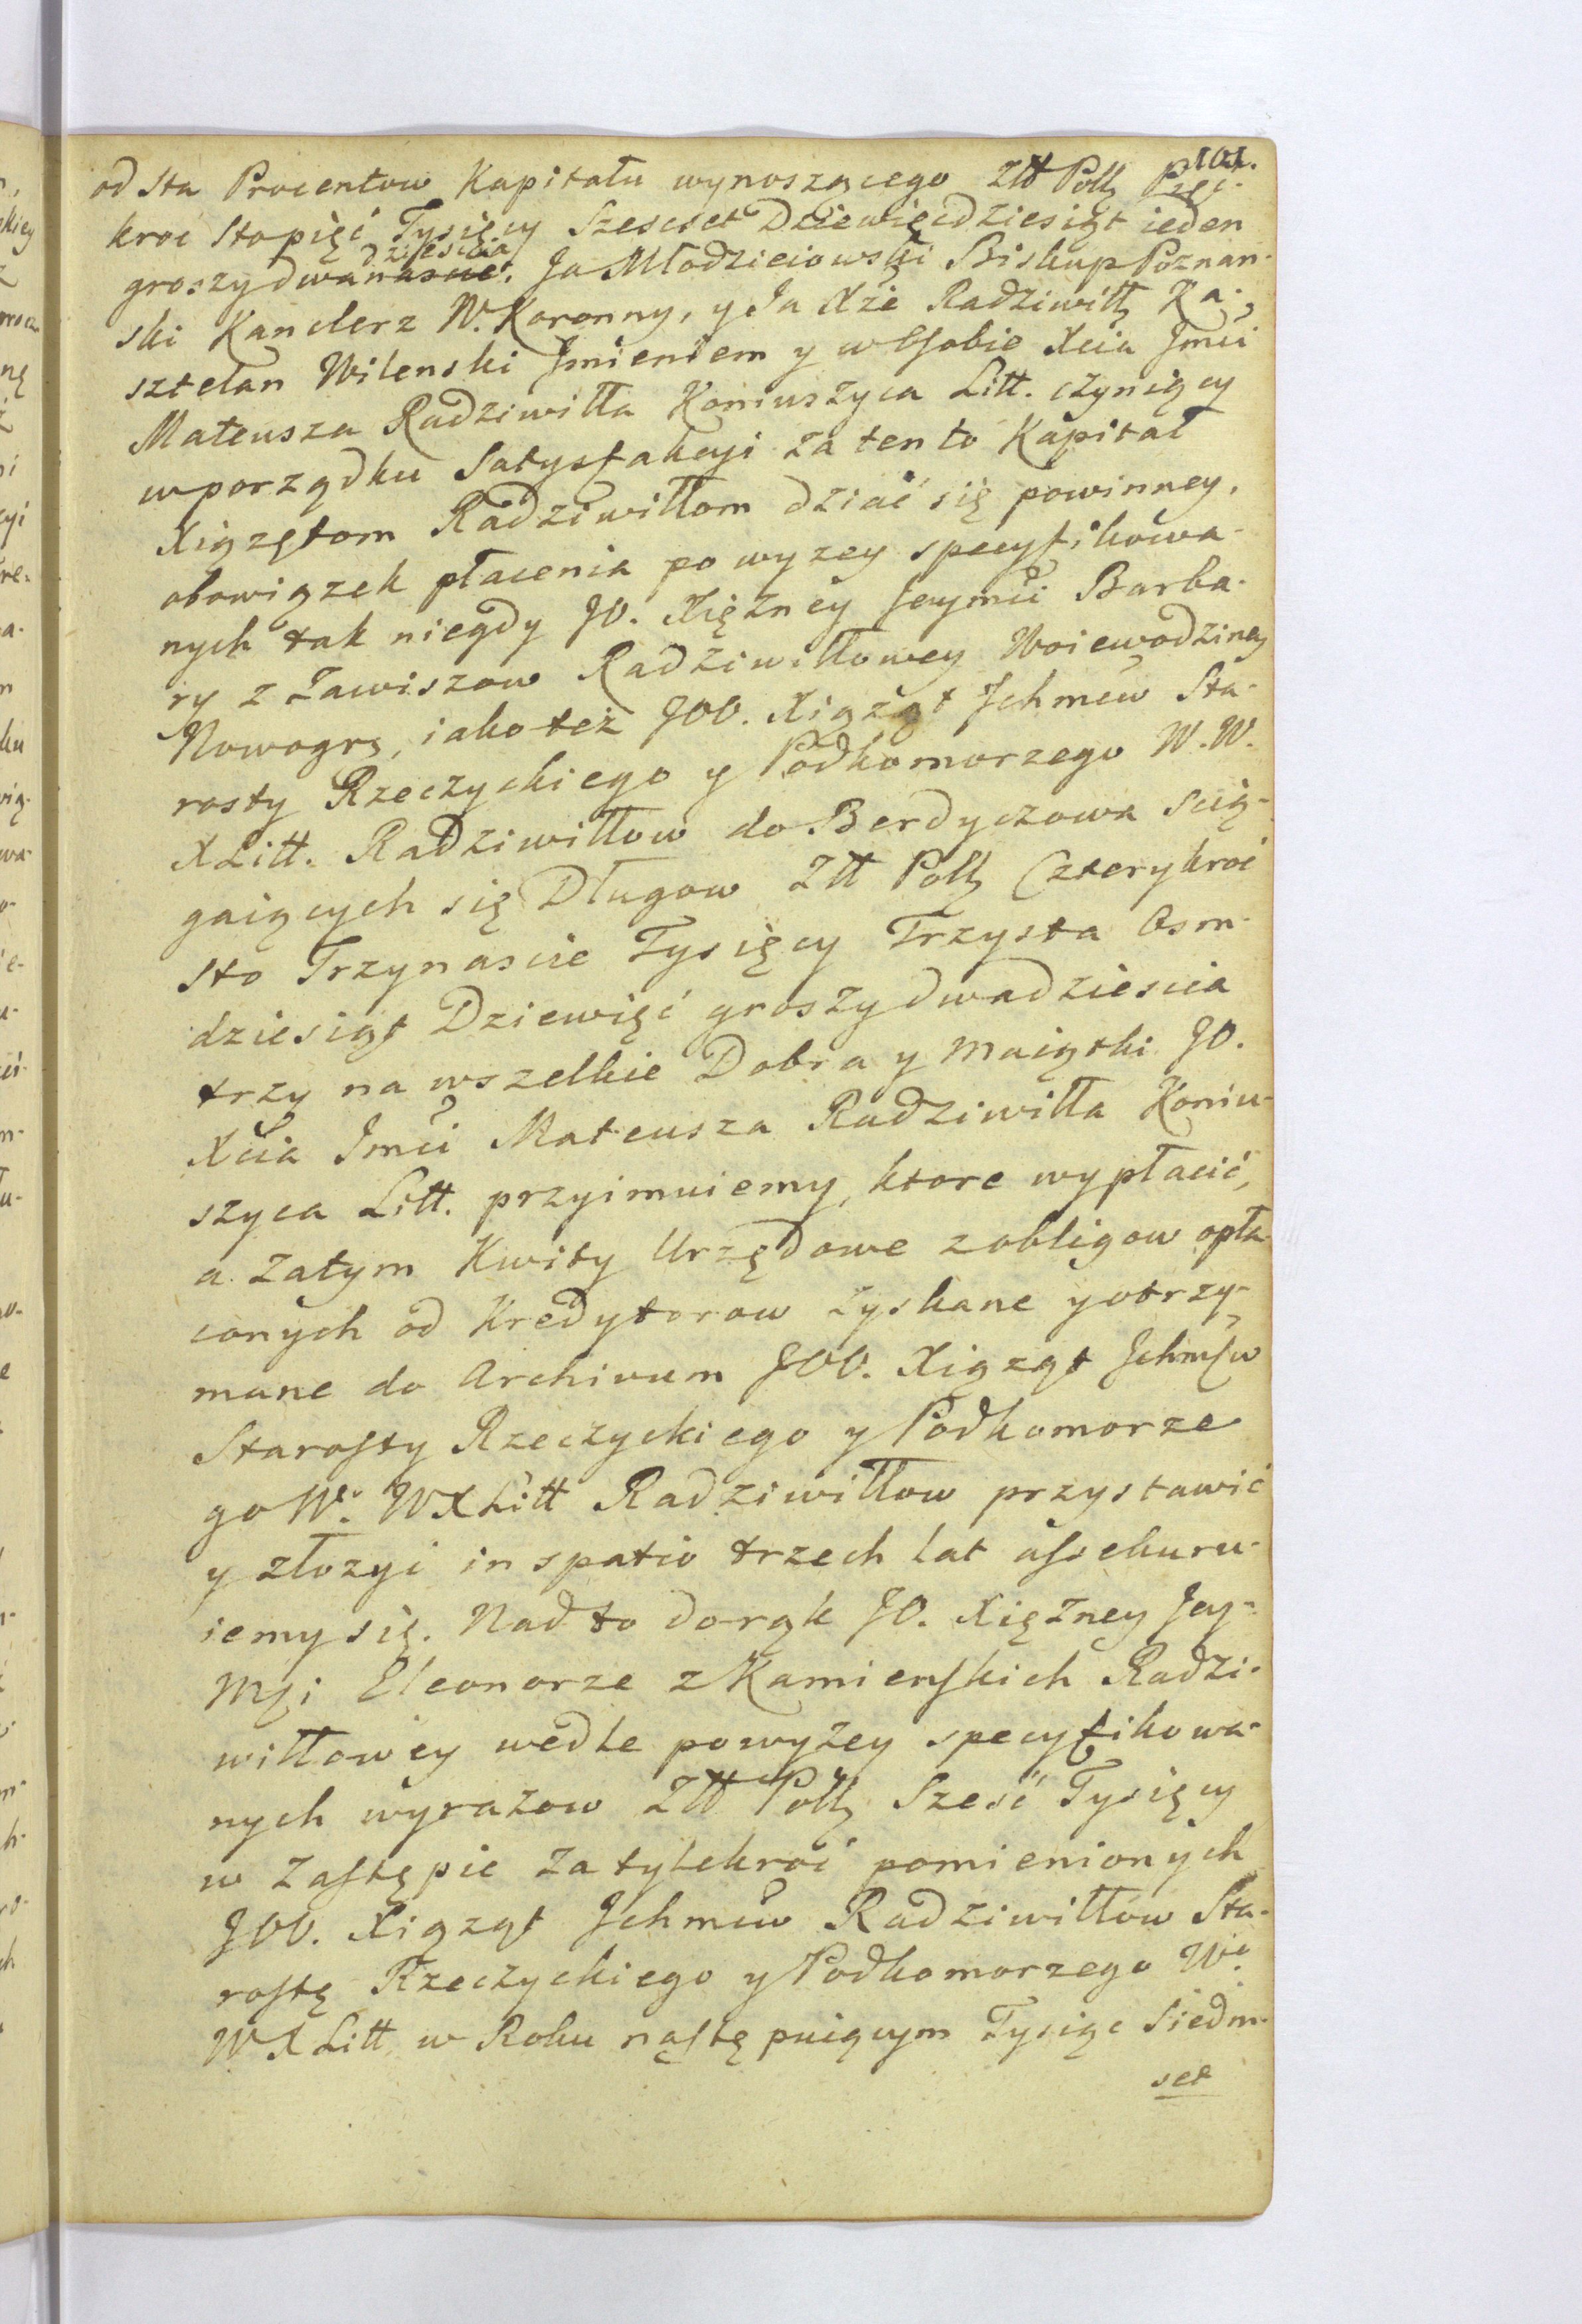 101.
od Sta Procentow Kapitału wynoszącego Złł Poll Pięć-
kroc Stopięć Tysięcy Szescset Dziewięcdziesiąt ieden
dziescia
groszy dwanascie. Ja Młodzieiowski Biskup Poznan-
ski Kanclerz W. Koronny, y Ja Xże Radziwiłł Ka-
sztelan Wilenski Jmieniem y w Osobie Xcia Jmci
Mateusza Radziwiłła Koniuszyca Litt. czyniący
w porządku Satysfakcyi za ten to Kapitał
Xiążętom Radziwiłłom dziać się powinney,
obowiązek płacenia powyzey specyfikowa-
nych tak niegdy JO. Xiężney Jeymci Barba-
ry z Zawiszow Radziwiłłowey Woiewodziney
Nowogrs, iako też JOO. Xiążąt Jchmciw Sta-
rosty Rzeczyckiego y Podkomorzego W. W.
X Litt. Radziwiłłow do Berdyczowa scią-
gaiących się Długow Złł Poll Czterykroć
sto Trzynascie Tysięcy Trzysta Osm-
dziesiąt Dziewięć groszy dwadziescia
trzy na wszelkie Dobra y Maiątki JO.
Xcia Jmci Mateusza Radziwiłła Koniu-
szyca Litt. przyimuiemy, ktore wypłacić,
a zatym Kwity Urzędowe z obligow opła-
conych od Kredytorow zyskane y otrzy-
mane do Archivum JOO. Xiąząt Jchmsciw
Starosty Rzeczyckiego y Podkomorze
go W. WXLitt Radziwiłłow przystawić
y złozyć in spatio trzech lat assekuru-
iemy się. Nad to do rąk JO. Xiężney Jey-
Mci Eleonorze z Kamienskich Radzi-
wiłłowey wedle powyżey specyfikowa-
nych wyrazow Złł Poll Szesć Tysięcy
w Zastępie za tylekroć pomienionych
JOO. Xiąząt Jchmciw Radziwiłłow Sta-
rostę Rzeczyckiego y Podkomorzego W.
WX Litt w Roku następuiącym Tysiąc Siedm-
set